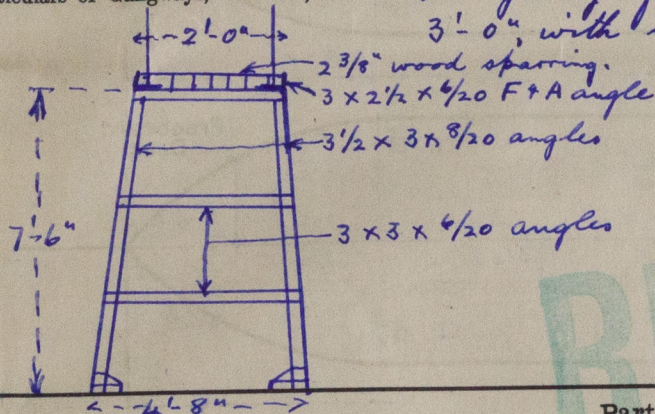 2'-0"
3'-0", with
2 3/8" wood sparring.
3 x 2 1/2 x 6/20 F & A angle
3 1/2 x 3 x 8/20 angles
7'-6"
3 x 3 x 6/20 angles
4'-8"